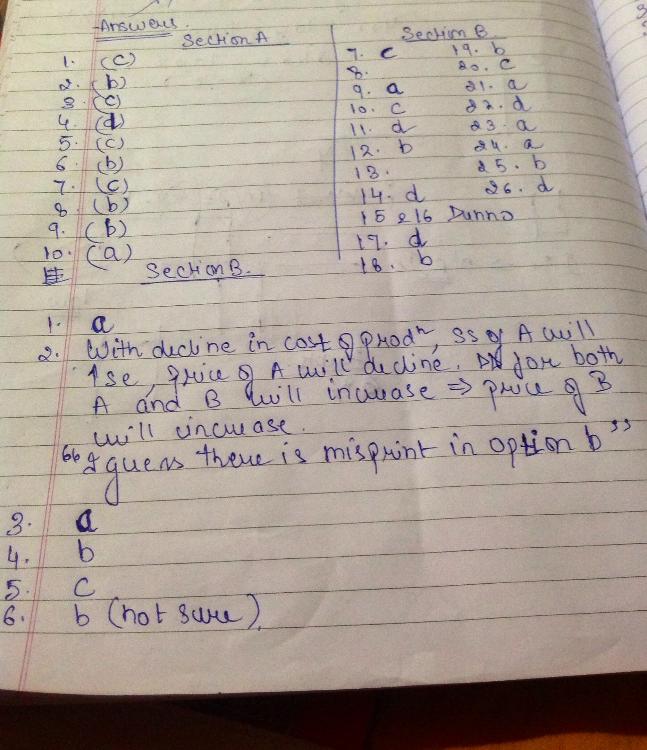 Answers.
Section A
1. (c)
2. (b)
3. (c)
4. (d)
5. (c)
6. (b)
7. (c)
8. (b)
9. (b)
10. (a)
Section B.
1. a
2. With decline in cost of prodⁿ, ss of A will
↑se, price of A will decline. DD for both
A and B will increase ⇒ price of B
will increase.
"I guess there is misprint in option b"
3. a
4. b
5. c
6. b (not sure)
Section B
7. c
8.
9. a
10. c
11. d
12. b
13.
14. d
15 & 16 Dunno
17. d
18. b
19. b
20. c
21. a
22. d
23. a
24. a
25. b
26. d